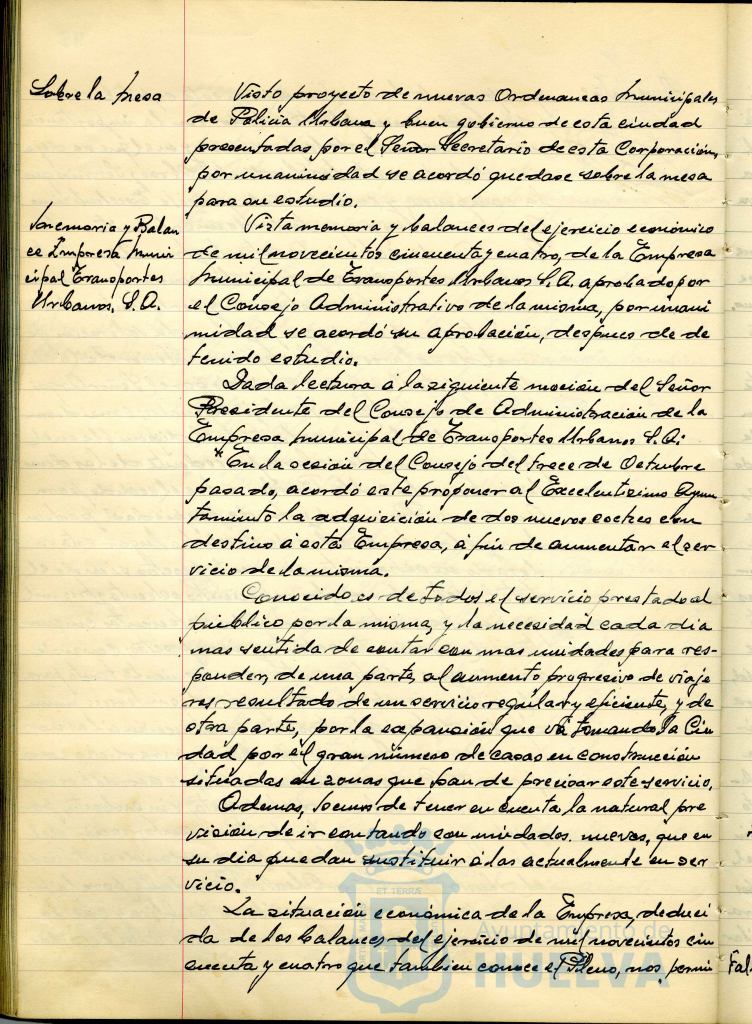 Sobre la mesa
Visto proyecto de nuevas Ordenanzas Municipales
de Policia Urbana y buen gobierno de esta ciudad
presentadas por el Señor Secretario de esta Corporación,
por unanimidad se acordó quedase sobre la mesa
para su estudio.
Memoria y Balan
ce Empresa Muni
cipal Transportes
Urbanos, S.A.
Vista memoria y balances del ejercicio económico
de mil novecientos cincuenta y cuatro, de la Empresa
Municipal de Transportes Urbanos S.A. aprobado por
el Consejo Administrativo de la misma, por unani
midad se acordó su aprobación, despues de de
tenido estudio.
Dada lectura á la siguiente moción del Señor
Presidente del Consejo de Administración de la
Empresa Municipal de Transportes Urbanos S.A:
"En la sesión del Consejo del trece de Octubre
pasado, acordó este proponer al Excelentisimo Ayun
tamiento la adquisición de dos nuevos coches con
destino á esta Empresa, á fin de aumentar el ser
vicio de la misma.
Conocido es de todos el servicio prestado al
público por la misma, y la necesidad cada dia
mas sentida de contar con mas unidades para res-
ponder, de una parte, al aumento progresivo de viaje
ros resultado de un servicio regular y eficiente, y de
otra parte, por la expansión que vá tomando la Ciu
dad por el gran número de casas en construcción
situadas en zonas que han de precisar este servicio.
Ademas, hemos de tener en cuenta la natural pre
visión de ir contando con unidades nuevas, que en
su dia puedan sustituir á las actualmente en ser
vicio.
La situación económica de la Empresa, deduci
da de los balances del ejercicio de mil novecientos cin
cuenta y cuatro que tambien conoce el Pleno, nos permi
Fal
ET TERRÆ
Ayuntamiento de
HUELVA